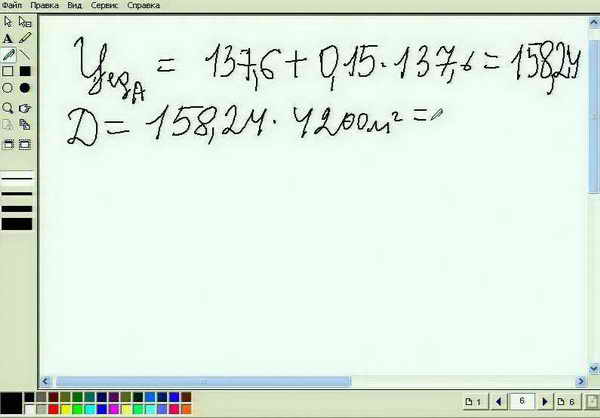 Файл Правка Вид Сервис Справка
Ц_ед_А = 137,6 + 0,15 · 137,6 = 158,24
Д = 158,24 · 4200 м² =
1 6 6